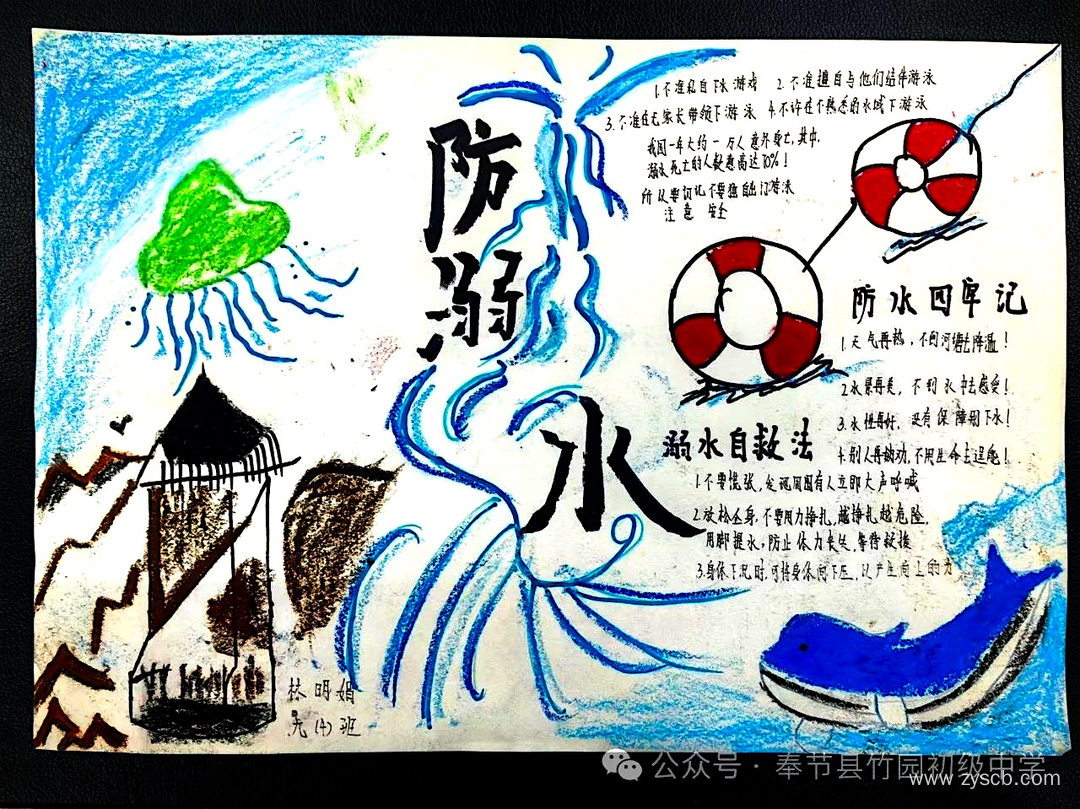 防溺水
1.不准私自下水游戏 2.不准擅自与他们结伴游泳
3.不准在无家长带领下游泳 4.不许在不熟悉的水域下游泳
我国一年大约一万人意外身亡,其中,
溺水死亡的人数高达70%!
所以要切记不要独自出门游泳
注意 安全
防水四牢记
1.天气再热,不到河塘去降温!
2.水景再美,不到水中去感受!
3.水性再好,没有保障别下水!
4.别人再劝,不用生命去逞能!
溺水自救法
1.不要慌张,发现周围有人立即大声呼喊
2.放松全身,不要用力挣扎,越挣扎越危险,
用脚提水,防止体力丧失,等待救援
3.身体下沉时,可将身体向下压,以产生向上的力
林明娟
九(4)班
公众号·奉节县竹园初级中学
www.zyscb.com